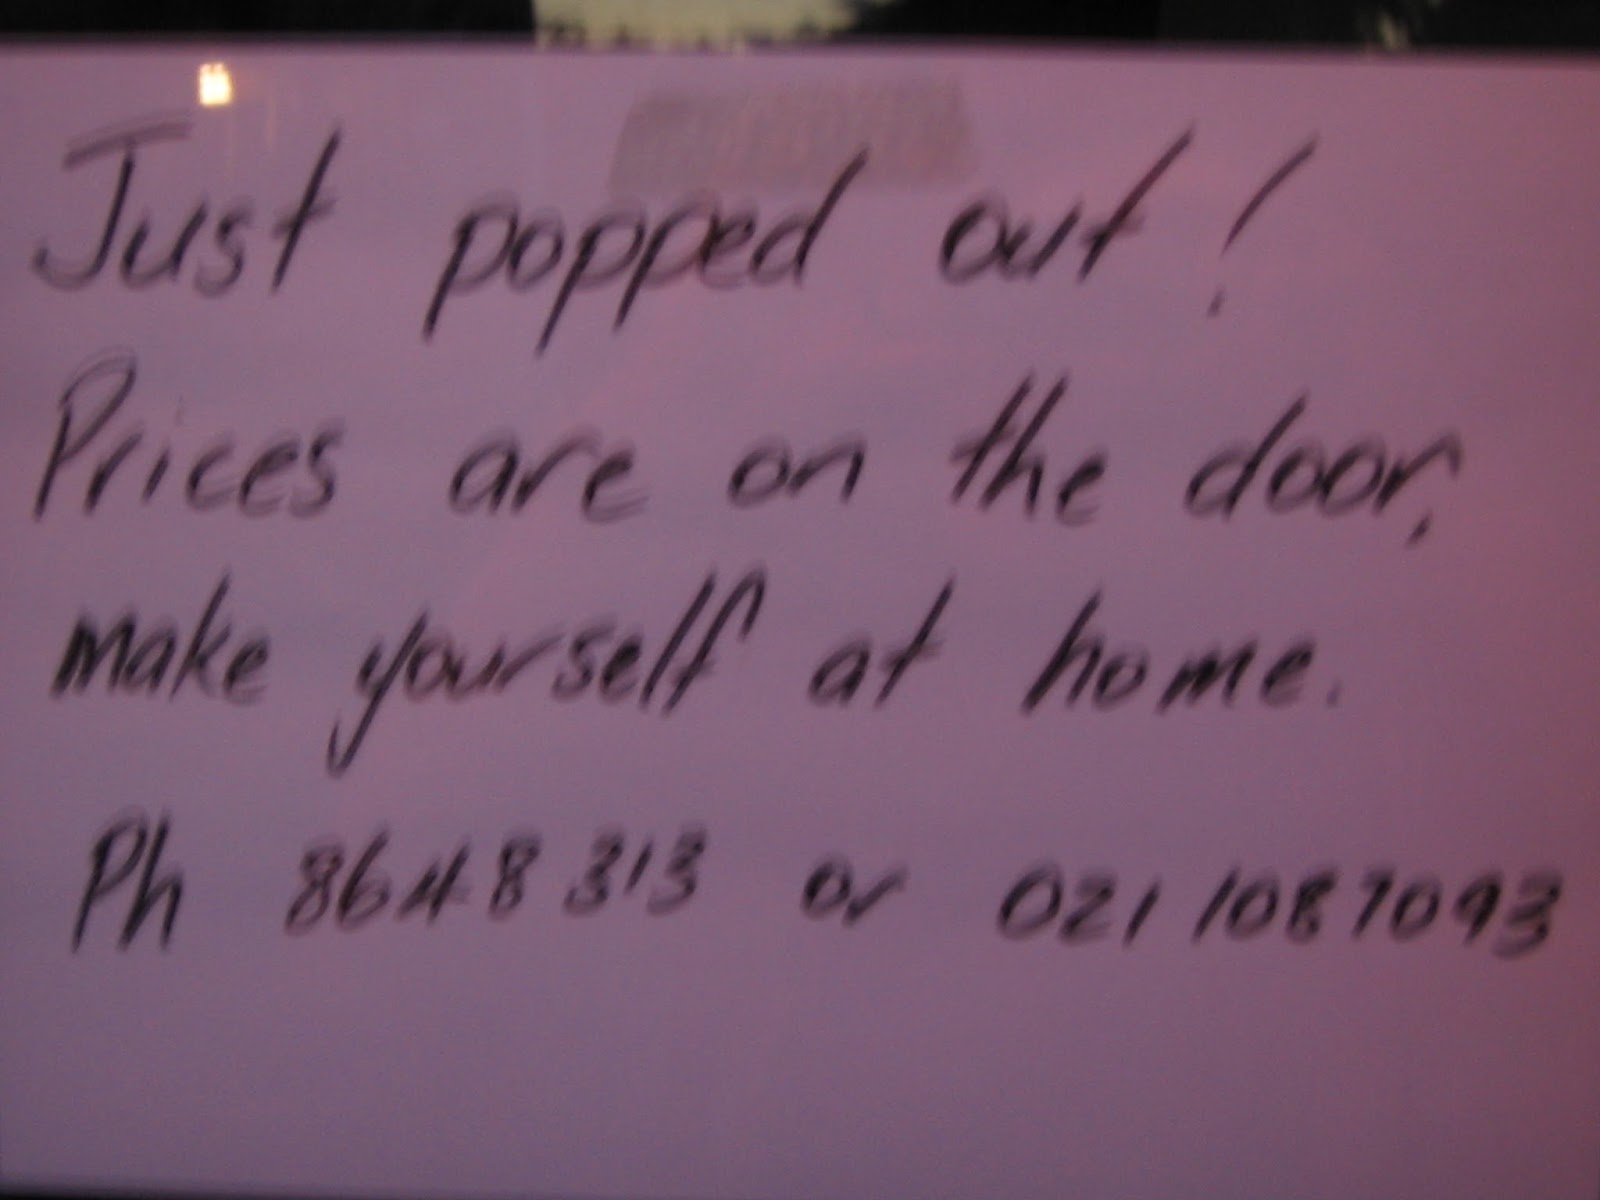 Just popped out!
Prices are on the door,
make yourself at home.
Ph 8648 313 or 021 1087093